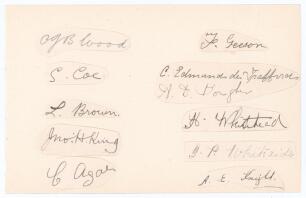 O J B Wood
S. Coe
L. Brown.
Jno. H. King
C Agar
F. Geeson
C. Edmund de Trafford
A D Pougher
H. Whitehead
J. P. Whiteside
A. E. Knight.